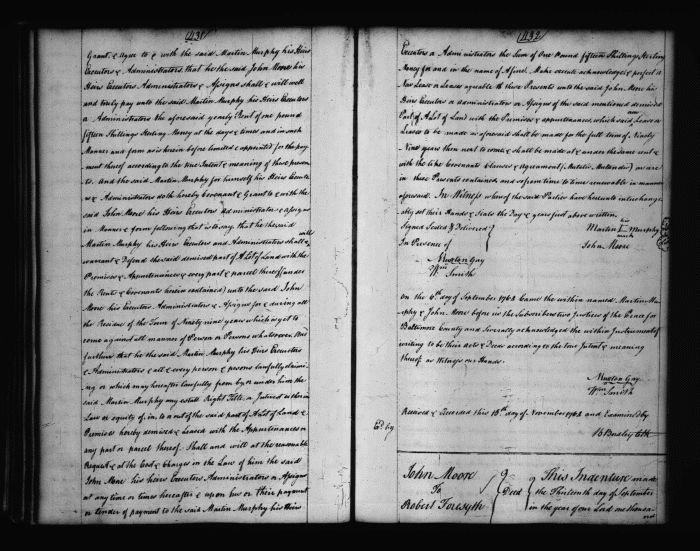 431
Grant & agree to & with the said Martin Murphy his Heirs
Executors & Administrators that he the said John Moore his
Heirs Executors Administrators & Assigns shall & will well
and truly pay unto the said Martin Murphy his Heirs Executors
or Administrators the aforesaid yearly Rent of one pound
fifteen Shillings Sterling Money at the days & times and in such
Manner and form as is herein before limited & appointed for the pay
ment thereof according to the true Intent & meaning of these presen
ts. And the said Martin Murphy for himself his Heirs Execut
rs & Administrators doth hereby Covenant & Grant to & with the
said John Moore his Heirs Executors Administrators & assigns
in Manner & form following that is to say, that he the said
Martin Murphy his Heirs Executors and Administrators shall & will
warrant & Defend the said demised part of A Lot of Land with the
Premises & Appurtenances & every part & parcel thereof (under
the Rents & Covenants herein contained) unto the said John
Moore his Executors Administrators & Assigns for & during all
the Residue of the Term of Ninety nine years which is yet to
come against all manner of Person or Persons whatsoever. And
further that he the said Martin Murphy his Heirs Executors
& Administrators & all & every person & persons lawfully claimi
ng or which may hereafter lawfully from by or under him the
said Martin Murphy any estate Right Title or Interest either in
Law or equity of in to or out of the said part of A Lot of Land &
Premises hereby demised & Leased with the Appurtenances or
any part or parcel thereof. Shall and will at the reasonable
Request & at the Cost & Charges in the Law of him the said
John Moore his Heirs Executors Administrators or Assigns
at any time or times hereafter & upon his or their payment
or tender of payment to the said Martin Murphy his Heirs
432
Executors or Administrators the Sum of One Pound fifteen Shillings Sterling
Money for and in the name of A fine. Make execute acknowledge & perfect a
New Lease or Leases agreeable to these Presents unto the said John Moore his
Heirs Executors or administrators or Assigns of the said mentioned demised
Part of A Lot of Land with the Premises & appurtenances, which said new Lease or
Leases to be made as aforesaid shall be made for the full term of Ninety
Nine years then next to come & shall be made at & under the same rent &
with the like Covenants Clauses & Agreements (Mutatis Mutandis) as are
in these Presents contained and so from time to time renewable in manner
aforesaid. In Witness whereof the said Parties have hereunto interchange
ably set their Hands & Seals the Day & years first above written.
Signed Sealed & Delivered
In Presence of
his
Martin I Murphy
mark
John Moore
Nuxton Gay
Wm Smith
On the 6th day of September 1768 Came the within named Martin Mu
rphy & John Moore before us the Subscribers two Justices of the Peace for
Baltimore County and Severally acknowledged the within Instrument of
writing to be their Acts & Deed according to the true Intent & meaning
thereof as Witness our Hands.
Nuxton Gay
Wm Smith
Received & Recorded this 18th day of November 1768 and Examined by
Ed. by
B Bordley Clk
John Moore
To
Robert Forsyth
Deed
This Indenture made
the Thirteenth day of September
in the year of our Lord one thousa
nd